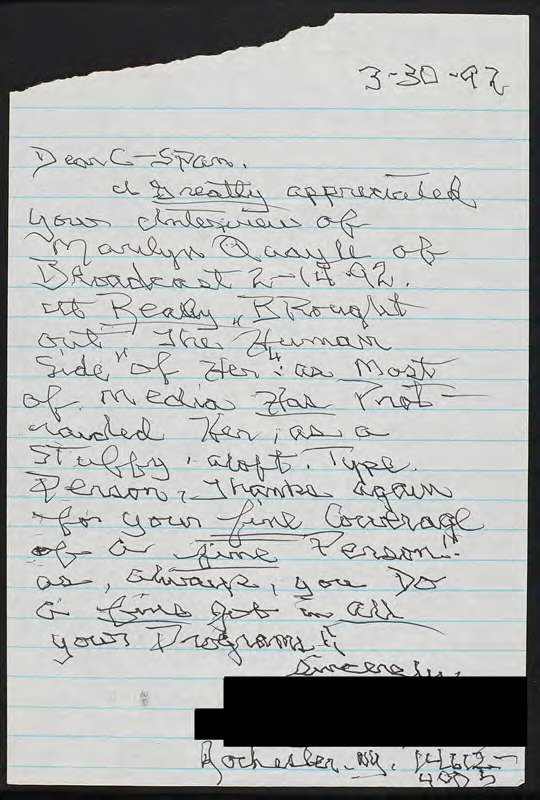 3-30-92
Dear C-Span.
I Greatly appreciated
your Interview of
Marilyn Quayle of
Broadcast 2-14-92.
it Really "BRought
out" The Human
Side" of Her; as Most
of media Has Prot-
raided Her, as a
Stuffy, aloft. Type.
Person, Thanks again
for your fine Coverage
of a fine Person!!
as, always, you Do
a fine job in all
your Programs!!
Sincerely,
Rochester, NY. 14612-